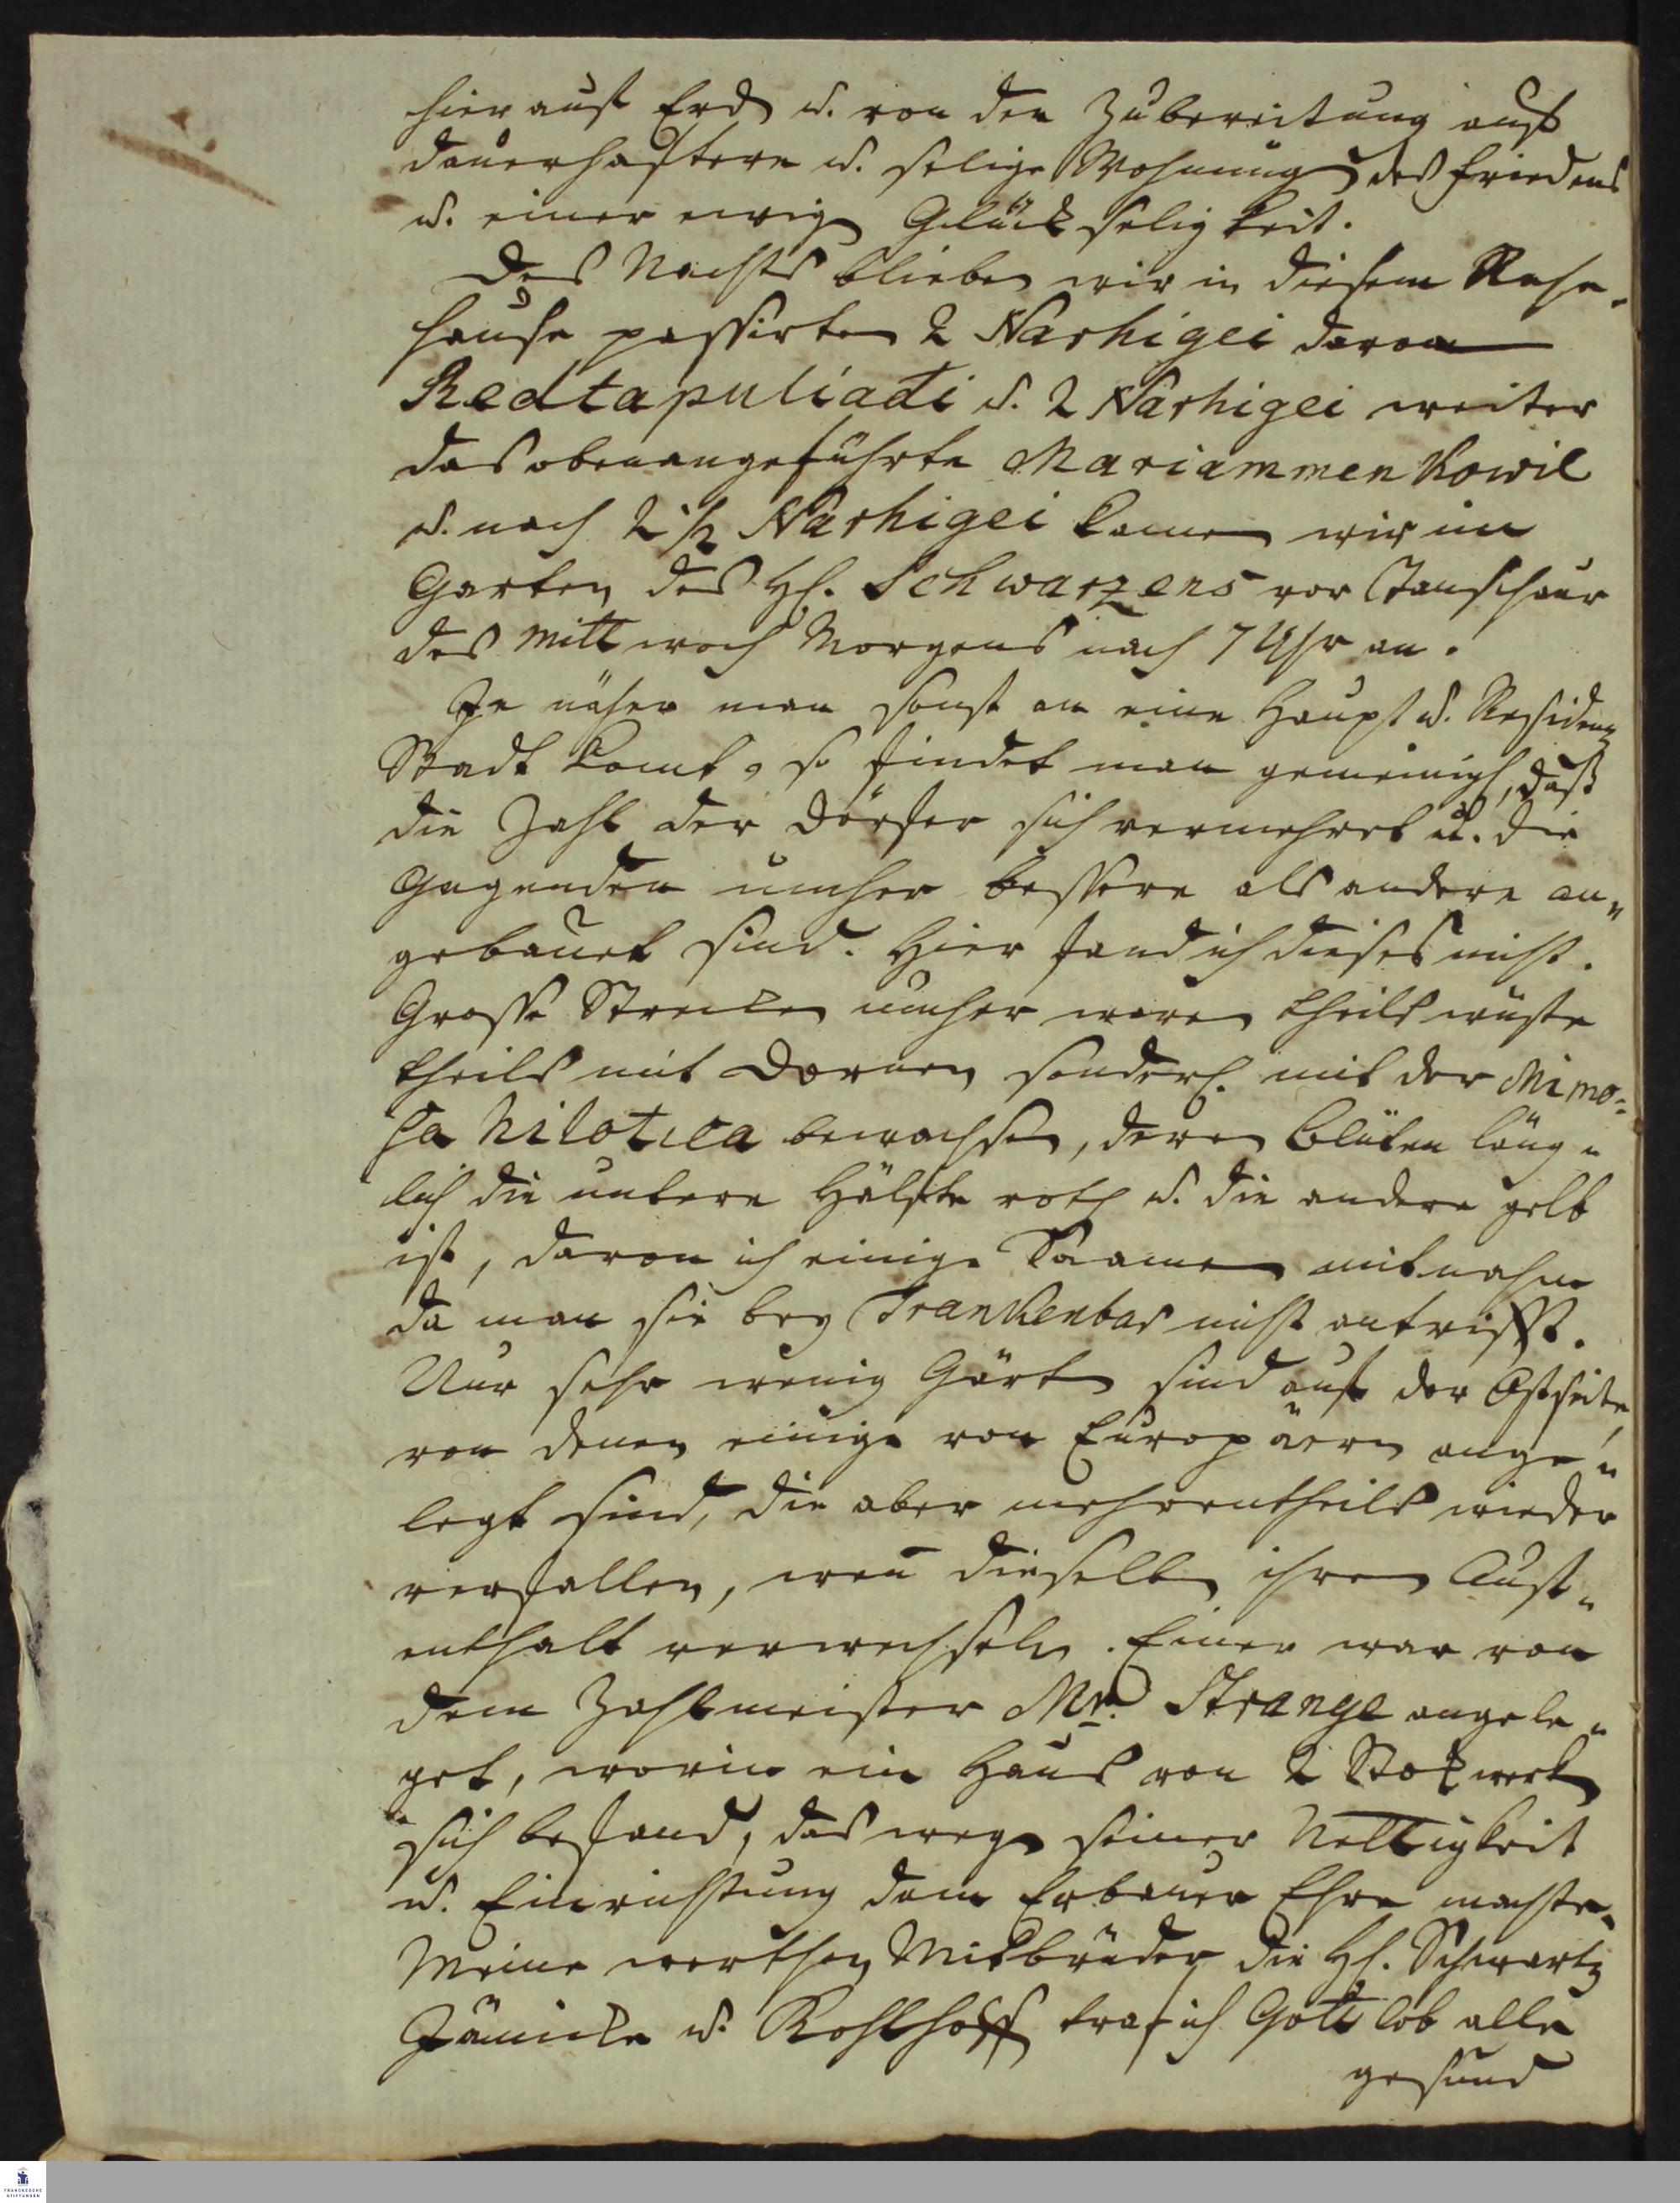 hier auf Erden u. von der Zubereitung auf
dauerhaftere u. selige Wohnungen des Friedens
u. einer ewigen Glückseligkeit.
Des Nachts blieben wir in diesem Ruhe-
hause passirten 2 Narhigei davon
Redtapuliadi u. 2 Narhigei weiter
das obenangeführte Mariammenkowil
u. nach 2 1/2 Narhigei kamen wir im
Garten des H. Schwarzens vor Tanschaur
des Mittwoch Morgens nach 7 Uhr an.
Je näher man sonst an eine Haupt u. Residenz
Stadt komt, so findet man gemeinigl, daß
die Zahl der Dörfer sich vermehret u. die
Gegenden umher bessere als andere an-
gebauet sind. Hier fand ich dieses nicht.
Grosse Strecken umher waren theils wüste
theils mit Dornen sonderl. mit der Mimo-
sa Nilotica bewachsen, deren Blüten läng-
lich die untere Hälfte roth u. die andere gelb
ist, davon ich einige Saamen mitnahm
da man sie bey Trankenbar nicht antrifft.
Nur sehr wenig Gärten sind auf der Ostseite,
von denen einige von Europäern ange-
legt sind, die aber mehrentheils wieder
verfallen, wen dieselben ihren Auf-
enthalt verwechseln. Einer war von
dem Zahlmeister Mr. Strange angele-
get, worin ein Haus von 2 Stokwerk
sich befand, das wegen seiner Nettigkeit
u. Einrichtung dem Erbauer Ehre machte.
Meine werthen Mitbrüder die H. Schwartz
Jänicke u. Kohlhoff traf ich Gottlob alle
gesund
FRANCKESCHE
STIFTUNGEN